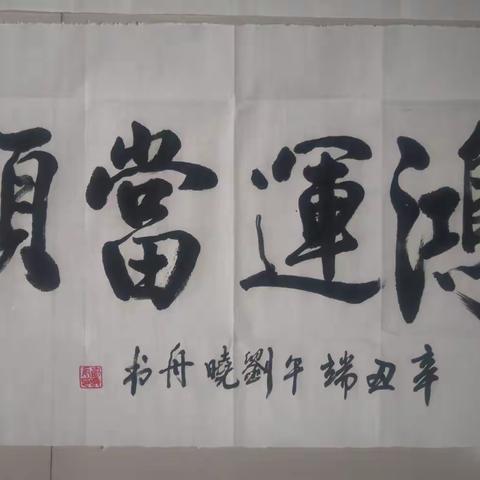 鴻運當頭
辛丑端午劉曉舟书